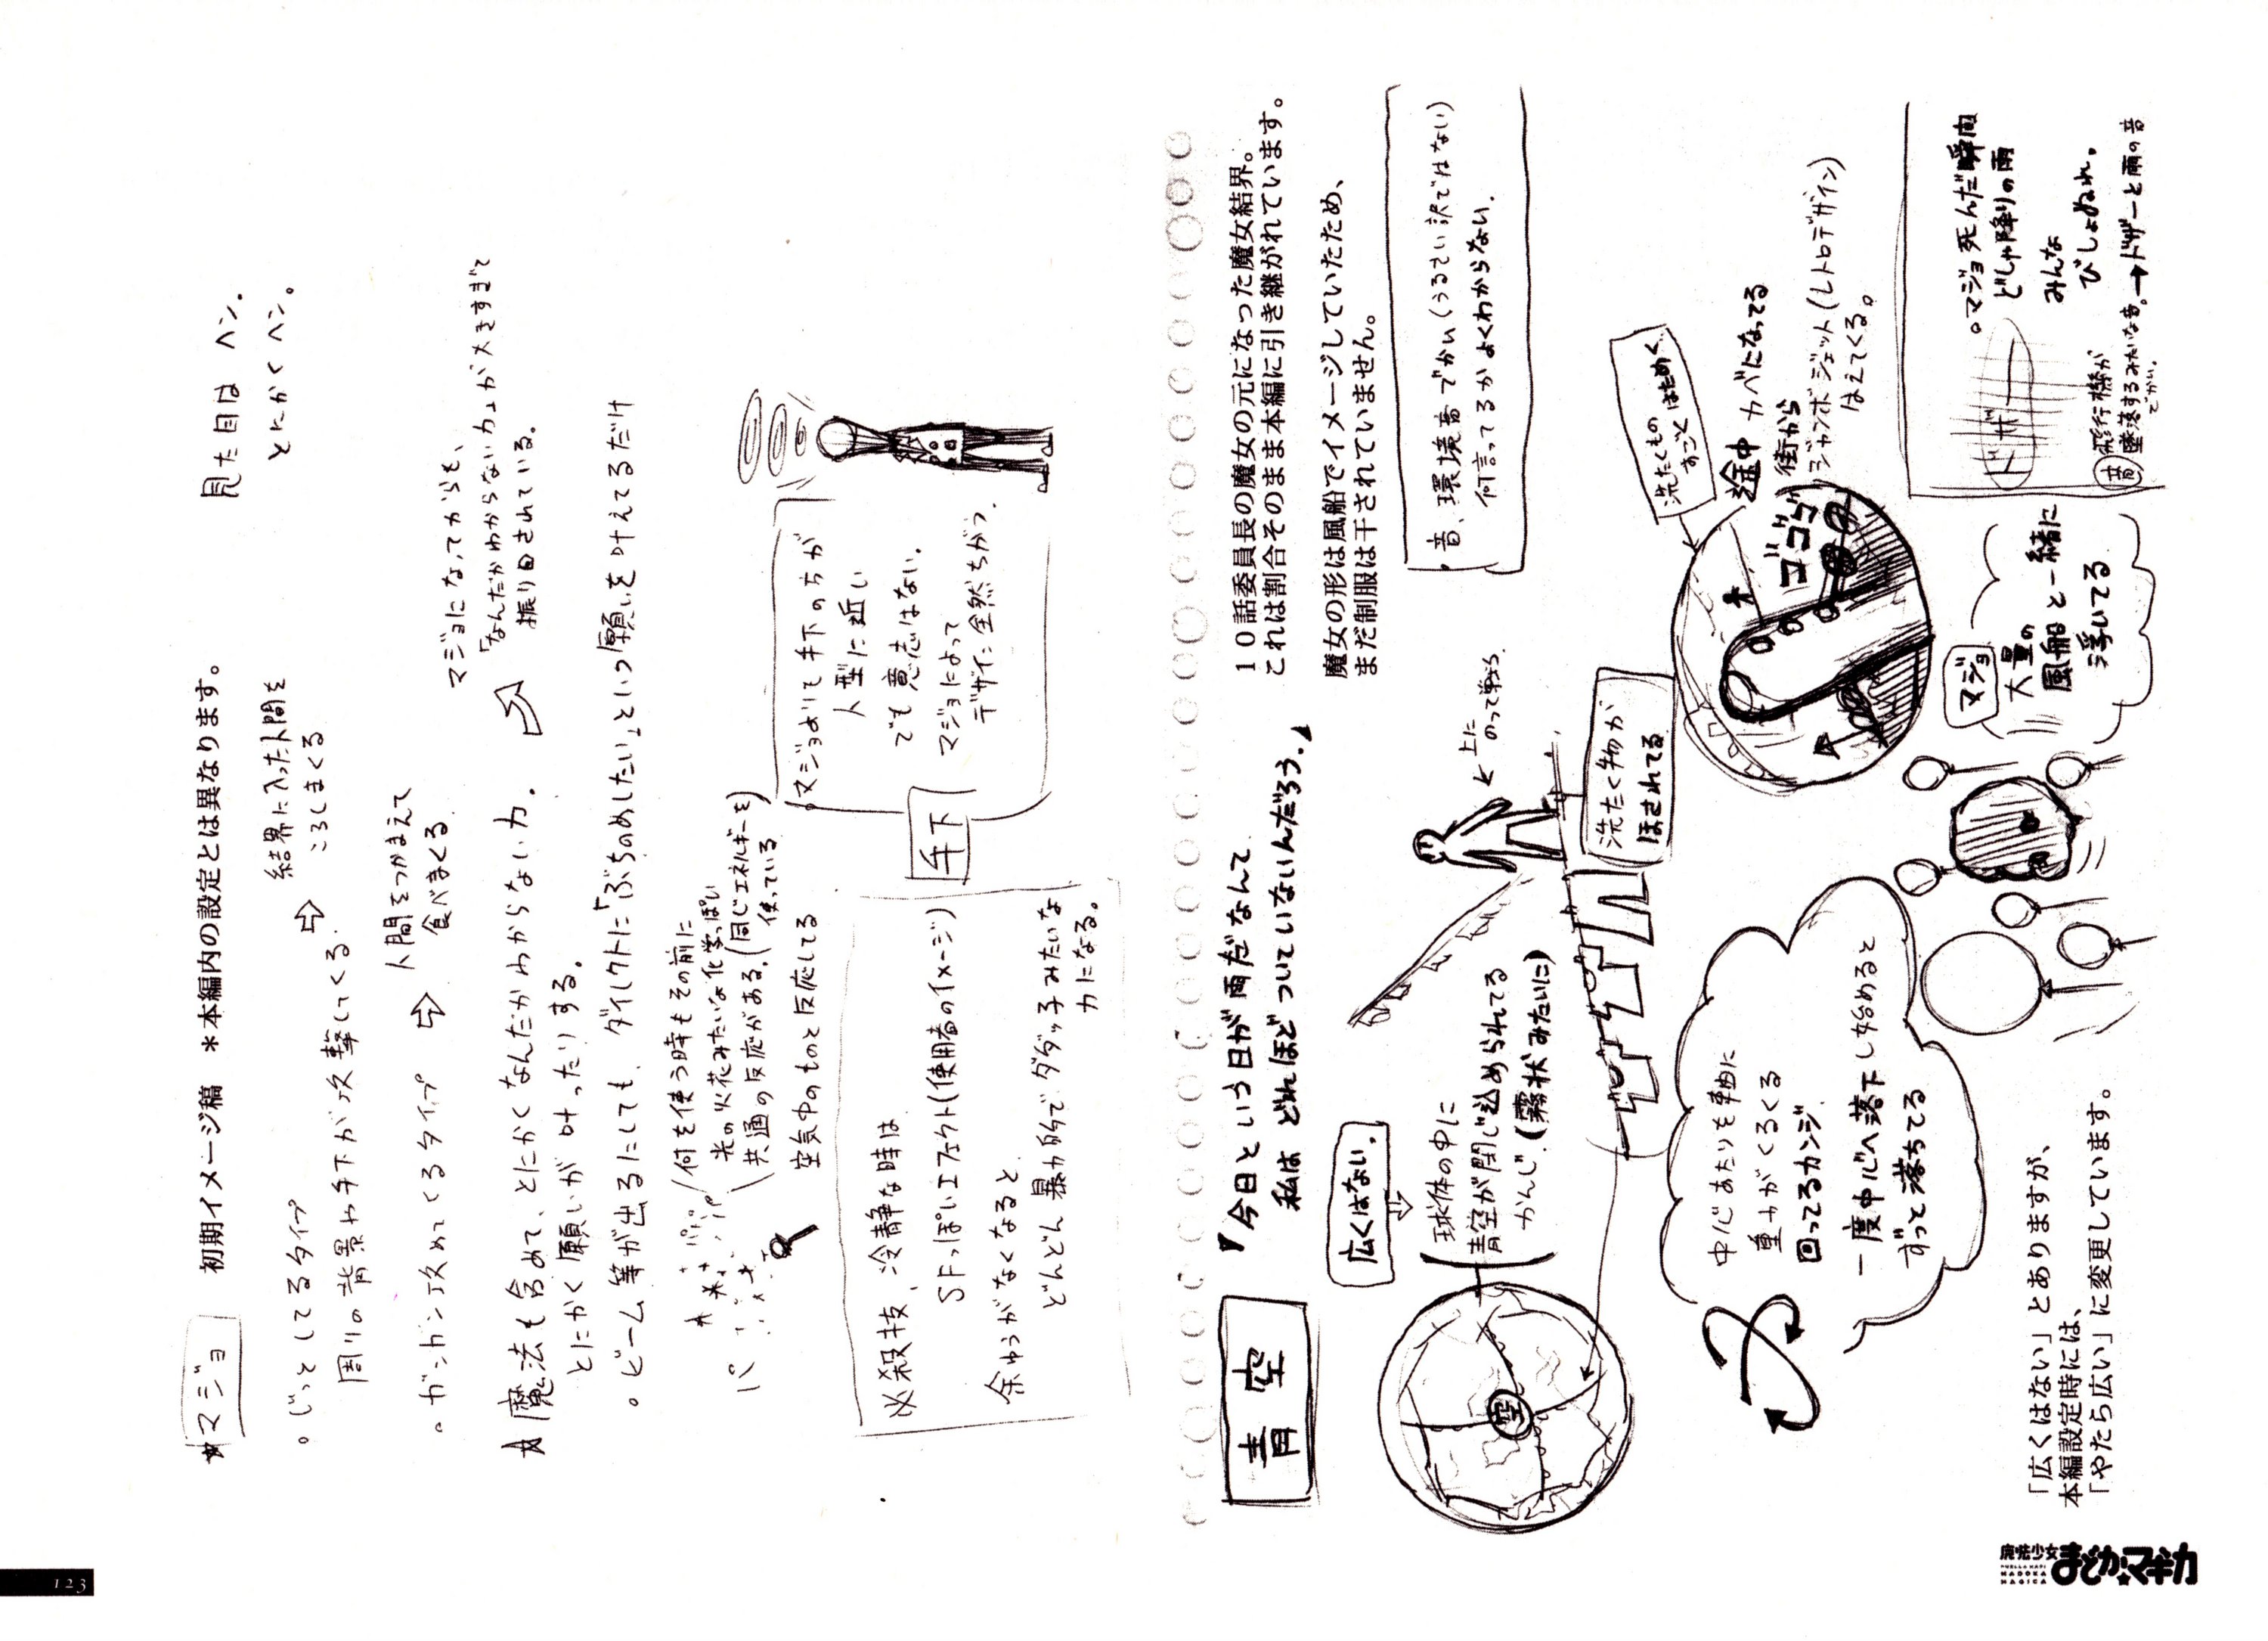 初期イメージ稿　＊本編内の設定とは異なります。
★マジョ
見た目は ヘン.
とにかく ヘン。
。じっとしてるタイプ
周りの背景や手下が攻撃してくる.
⇨
結界に入った人間を
ころしまくる
。ガンガン攻めてくるタイプ
⇨
人間をつかまえて
食べまくる
☆魔法も含めて、とにかくなんだかわからない力.
とにかく願いが叶ったりする。
マジョになってからも、
「なんだかわからない力」が大きすぎて
振り回されている。
。ビーム等が出るにしても、ダイレクトに「ぶちのめしたい」という願いを叶えてるだけ
パ
パパ
何を使う時もその前に
光の火花みたいな化学っぽい
共通の反応がある.(同じエネルギーを
使っている)
空気中のものと反応してる
必殺技、冷静な時は
SFっぽいエフェクト(使用者のイメージ)
余ゆうがなくなると
どんどん暴力的でダダッ子みたいな
力になる。
手下
。マジョよりも手下の方が
人型に近い
でも意志はない.
マジョによって
デザイン全然ちがう.
青空
『今日という日が雨だなんて
私は どれほどついていないんだろう.』
10話委員長の魔女の元になった魔女結界。
これは割合そのまま本編に引き継がれています。
魔女の形は風船でイメージしていたため、
まだ制服は干されていません。
・音、環境音でかい(うるさい訳ではない)
何言ってるかよくわからない.
広くはない.
⇨
球体の中に
青空が閉じ込められてる
かんじ.(霧状みたいに)
空
←上に
のって戦う.
洗たく物が
ほされてる
洗たくもの
すごくはためく
途中 カベになってる
ゴゴゴ
街から
ジャンボジェット(レトロデザイン)
はえてくる。
中心あたりを軸に
重力がくるくる
回ってるカンジ.
一度中心へ落下し始めると
ずっと落ちてる
マジョ
大量の
風船と一緒に
浮いてる
。マジョ死んだ瞬間
どしゃ降りの雨
みんな
びしょぬれ.
ドザー
音
飛行機が
墜落するみたいな音。→ドザーと雨の音
でかい.
「広くはない」とありますが、
本編設定時には、
「やたら広い」に変更しています。
123
魔法少女
まどか☆マギカ
PUELLA MAGI
MADOKA
MAGICA